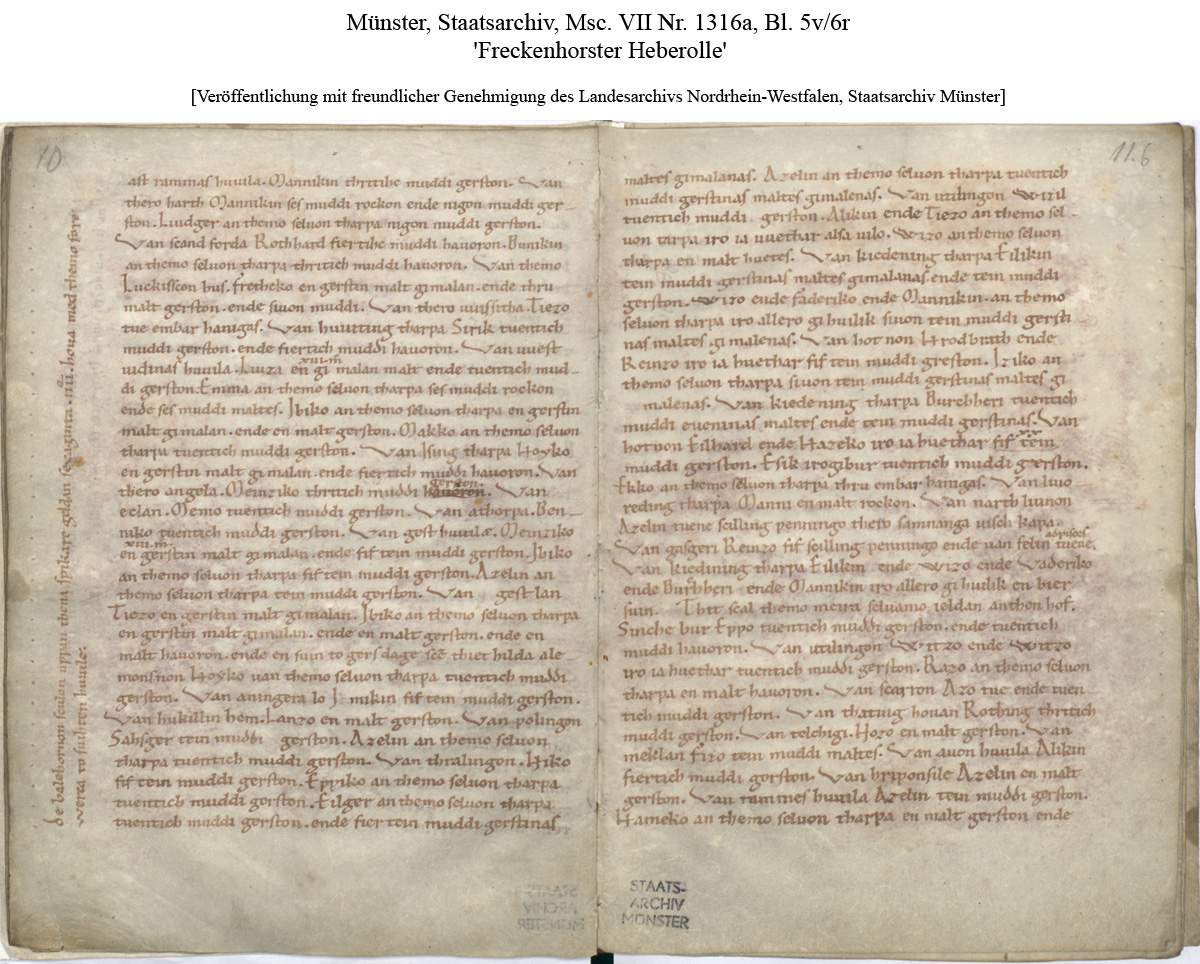 Münster, Staatsarchiv, Msc. VII Nr. 1316a, Bl. 5v/6r
'Freckenhorster Heberolle'
[Veröffentlichung mit freundlicher Genehmigung des Landesarchivs Nordrhein-Westfalen, Staatsarchiv Münster]
10
ast rammas huvila. Mannikin thritihc muddi gerston. Van
thero harth Mannikin ses muddi rockon ende nigon muddi ger-
ston. Liudger an themo seluon tharpa nigon muddi gerston.
Van scand forda Rothhard fiertihc muddi hauoron. Bunikin
an themo seluon tharpa thritich muddi hauoron. Van themo
Luckisscon hus. frethiko en gerstin malt gimalan. ende thru
malt gerston. ende siuon muddi. Van thero mussitha. Tiezo
tue embar hanigas. Van huuting tharpa Sirik tuentich
muddi gerston. ende fiertich muddi hauoron. Van uuest
judinas huvila. Liuza en gi malan malt ende tuentich mud-
di gerston. Emma an themo seluon tharpa ses muddi rockon
ende ses muddi maltes. Ibiko an themo seluon tharpa en gerstin
malt gimalan. ende en malt gerston. Makko an themo seluon
tharpa tuentich muddi gerston. Van Ising tharpa Hoyko
en gerstin malt gi malan. ende fiertich muddi hauoron. Van
gerston.
thero angela. Meinziko thritich muddi hauoron. Van
eclan. Memo tuentich muddi gerston. Van athorpa. Ben-
niko tuentich muddi gerston. Van gest huvilæ. Meinziko
en gerstin malt gimalan. ende fif tein muddi gerston. Ibiko
an themo seluon tharpa fif tein muddi gerston. Azelin an
themo seluon tharpa tein muddi gerston. Van gest lan
Tiezo en gerstin malt gi malan. Ibiko an themo seluon tharpa
en gerstin malt gimalan. ende en malt gerston. ende en
malt hauoron. ende en suin to gers dage sce thiet hilda ale-
mosnon Hoyko van themo seluon tharpa tuentich muddi
gerston. Van aningera lo Immikin fif tein muddi gerston.
Van hukillin hem. Lanzo en malt gerston. Van polingon
Sahsger tein muddi gerston. Azelin an themo seluon
tharpa tuentich muddi gerston. Van thralingon. Hiko
fif tein muddi gerston. Eppiko an themo seluon tharpa
tuentich muddi gerston. Eilger an themo seluon tharpa
tuentich muddi gerston. ende fier tein muddi gerstinas
hova mad themo fore
werka to suthten huvile.
11.6
maltes gimalanas. Azelin an themo seluon tharpa tuentich
muddi gerstinas maltes gimalenas. Van utilingon Wizil
tuentich muddi gerston. Alikin ende Tiezo an themo sel-
uon tarpa iro ia uuethar alsa uilo. Wizo an themo seluon
tharpa en malt huetes. Van kiedening tharpa Eilikin
tein muddi gerstinas maltes gimalanas. ende tein muddi
gerston. Wizo ende faderiko ende Mannikin. an themo
seluon tharpa iro allero gi huilik siuon tein muddi gersti
nas maltes gi malenas. Van hot non Hrodbrath ende
Reinzo iro ia huethar fif tein muddi greston. Iziko an
themo seluon tharpa siuon tein muddi gerstinas maltes gi
malenas. Van kiedening tharpa Burchheri tuentich
muddi eueninas maltes ende tein muddi gerstinas. Van
hotnon Eilhard ende Hazeko iro ia huethar fif tein
muddi gerston. Esik irogibur tuentich muddi gerston.
Ekko an themo seluon tharpa thru embar hanigas. Van liuo
reding tharpa Manni en malt rockon. Van narth liunon
Azelin tuene scilling penningo thero samnanga uisch kapa.
Van gasgeri Reinzo fif scilling penningo ende van felin tuene.
Van kiedining tharpa Eilikin ende Wizo ende Vaderiko
ende Burhheri ende Mannikin iro allero gi huilik en bier
suin. Thit scal themo meira seluamo ieldan anthen hof.
Siniche bur Eppo tuentich muddi gerston. ende tuentich
muddi hauoron. Van utilingon Witzo ende Witzo
iro ia huethar tuentich muddi gerston. Razo an themo seluon
tharpa en malt hauoron. Van scarron Azo tue ende tuen
tich muddi gerston. Van thatuig houan Rothing thritich
muddi gerston. Van telchigi. Hozo en malt gerston. Van
meklan fizo tein muddi maltes. Van auon huvila Alikin
fiertich muddi gerston. Van briponsile Azelin en malt
gerston. Van rammes huvila Azelin tein muddi gerston.
Hameko an themo seluon tharpa en malt gerston ende
STAATS-
ARCHIV
MÜNSTER